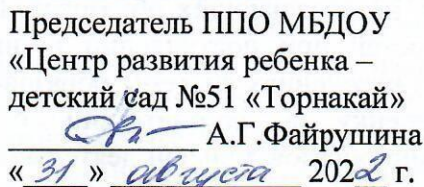 Председатель ППО МБДОУ
«Центр развития ребенка –
детский сад №51 «Торнакай»
А.Г.Файрушина
«31» августа 2022 г.